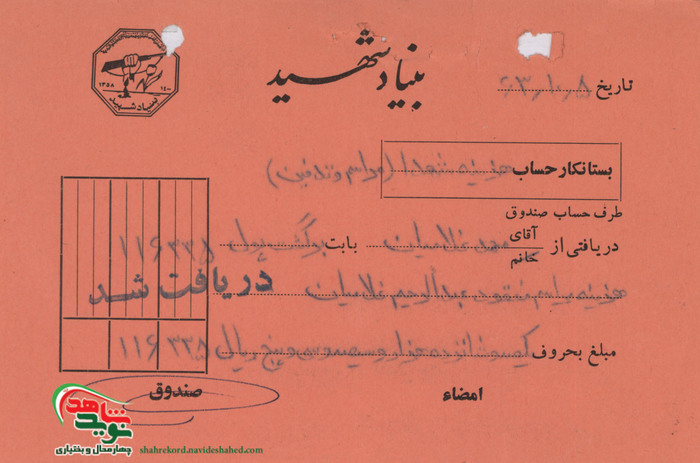 بنیاد شهید
۱۳۵۸
۱۴۰۰
بنیاد شهید
تاریخ ۶۳٫۱۰٫۵
بستانکار حساب هزینه شهدا (مراسم و تدفین)
طرف حساب صندوق
دریافتی از آقای خانم محمد غلامیان بابت برگشت پول ۱۱۶۳۳۵
هزینه مراسم مفقود عبدالرحیم غلامیان دریافت شد
مبلغ بحروف یکصدو شانزده هزار و سیصد و سی و پنج ریال ۱۱۶۳۳۵
امضاء
صندوق
نوید شاهد
چهارمحال و بختیاری
shahrekord.navideshahed.com